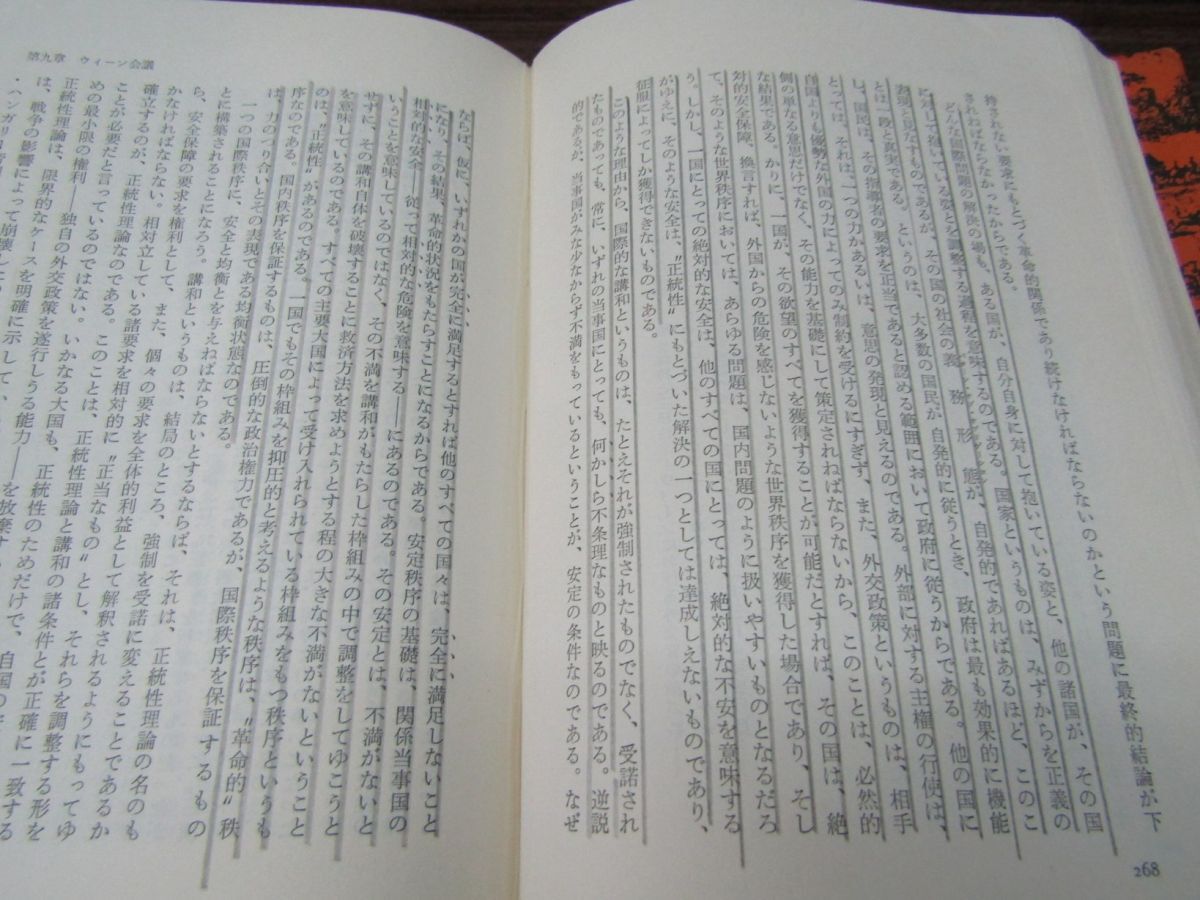 268
持されない要求にもとづく革命的関係であり続けなければならないのかという問題に最終的結論が下
されねばならなかったからである。
どんな国際問題の解決の場も、ある国が、自分自身に対して抱いている姿と、他の諸国が、その国
に対して抱いている姿とを調整する過程を意味するのである。国家というものは、みずからを正義の
表現と見なすものであるが、その国の社会の義務形態が、自発的であればあるほど、このこ
とは一段と真実である。というのは、大多数の国民が自発的に従うとき、政府は最も効果的に機能
し、国民は、その指導者の要求を正当であると認める範囲において政府に従うからである。他の国に
とっては、それは、一つの力かあるいは、意思の発現と見えるのである。外部に対する主権の行使は、
自国よりも優勢な外国の力によってのみ制約を受けるにすぎず、また、外交政策というものは、相手
側の単なる意思だけでなく、その能力を基礎にして策定されねばならないから、このことは、必然的
な結果である。かりに、一国が、その欲望のすべてを獲得することが可能だとすれば、その国は、絶
対的安全保障、換言すれば、外国からの危険を感じないような世界秩序を獲得した場合であり、そし
て、そのような世界秩序においては、あらゆる問題は、国内問題のように扱いやすいものとなるだろ
う。しかし、一国にとっての絶対的な安全は、他のすべての国にとっては、絶対的な不安を意味する
がゆえに、そのような安全は、〝正統性〟にもとづいた解決の一つとしては達成しえないものであり、
征服によってしか獲得できないものである。
このような理由から、国際的な講和というものは、たとえそれが強制されたものでなく、受諾され
たものであっても、常に、いずれの当事国にとっても、何かしら不条理なものと映るのである。逆説
的であるが、当事国がみな少なからず不満をもっているということが、安定の条件なのである。なぜ
第九章 ウィーン会議
ならば、仮に、いずれかの国が完全に満足するとすれば他のすべての国々は、完全に満足しないこと
になり、その結果、革命的状況をもたらすことになるからである。安定秩序の基礎は、関係当事国の
相対的な安全――従って相対的な危険を意味する――にあるのである。その安定とは、不満がないと
いうことを意味しているのではなく、その不満を講和がもたらした枠組みの中で調整をしてゆこうと
せずに、その講和自体を破壊することに救済方法を求めようとする程の大きな不満がないということ
を意味しているのである。すべての主要大国によって受け入れられている枠組みをもつ秩序というも
のは、〝正統性〟があるのである。一国でもその枠組みを抑圧的と考えるような秩序は、〝革命的〟秩
序なのである。国内秩序を保証するものは、圧倒的な政治権力であるが、国際秩序を保証するもの
は、力のつり合いとその表現である均衡状態なのである。
一つの国際秩序に、安全と均衡とを与えねばならないとするならば、それは、正統性理論の名のも
とに構築されることになろう。講和というものは、結局のところ、強制を受諾に変えることであるか
ら、安全保障の要求を権利として、また、個々の要求を全体的利益として解釈されるようにもってゆ
かなければならない。相対立している諸要求を相対的に〝正当なもの〟とし、それらを調整する形を
確立するのが、正統性理論なのである。このことは、正統性理論と講和の諸条件とが正確に一致する
ことが必要だと言っているのではない。いかなる大国も、正統性のためだけで、自国の
めの最小限の権利――独自の外交政策を遂行しうる能力――を放棄す
正統性理論は、限界的なケースを明確に示して
は、戦争の影響によって崩壊し
・ハンガリ